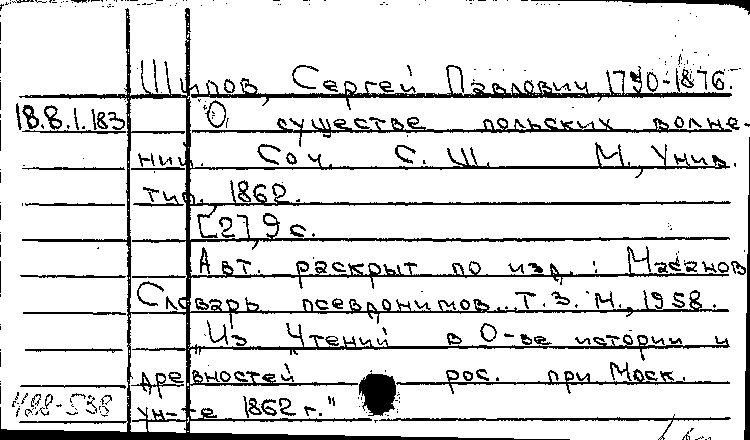 Шипов, Сергей Павлович, 1790-1876.
18.8.1.183 О существе польских волне-
ний. Соч. С. Ш. М., Унив.
тип., 1862.
[2], 9 с.
Авт. раскрыт по изд.: Масанов
Словарь псевдонимов.. Т.3. М., 1958.
„Из „Чтений в О-ве истории и
древностей рос. при Моск.
ун-те 1862 г."
488-538